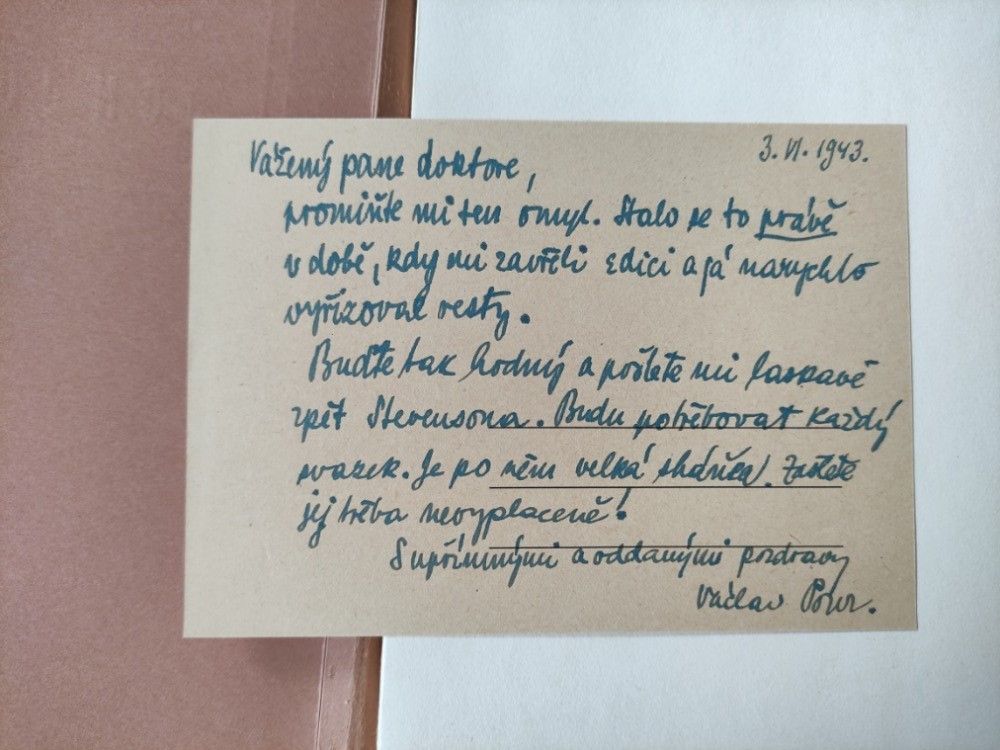 3. VI. 1943.
Vážený pane doktore,
promiňte mi ten omyl. Stalo se to právě
v době, kdy mi zavřeli edici a já narychlo
vyřizoval resty.
Buďte tak hodný a pošlete mi laskavě
zpět Stevensona. Budu potřebovat každý
svazek. Je po něm velká sháňka. Zašlete
jej třeba nevyplaceně!
S upřímnými a oddanými pozdravy
Václav